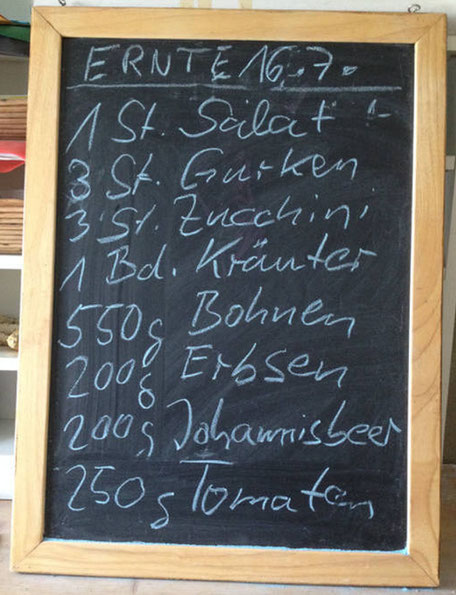 ERNTE 16.7.
1 St. Salat
3 St. Gurken
3 St. Zucchini
1 Bd. Kräuter
550g Bohnen
200g Erbsen
200g Johannisbeer
250g Tomaten